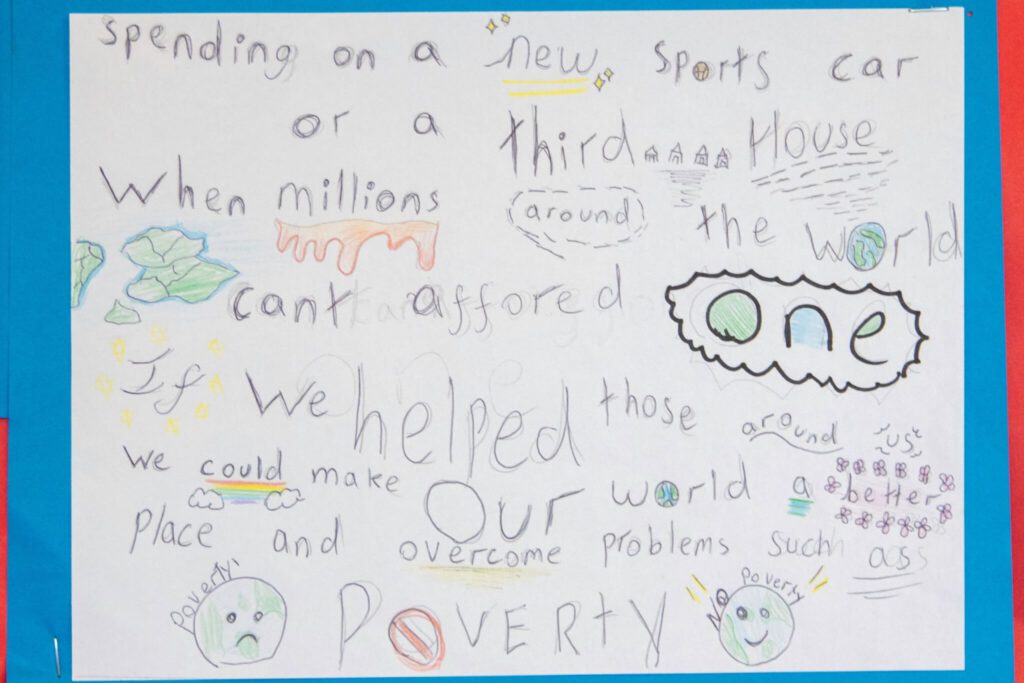 spending on a new sports car
or a third House
When millions around the world
cant affored one
If we helped those around us
we could make our world a better
place and overcome problems such as
Poverty
POVERTY
NO Poverty